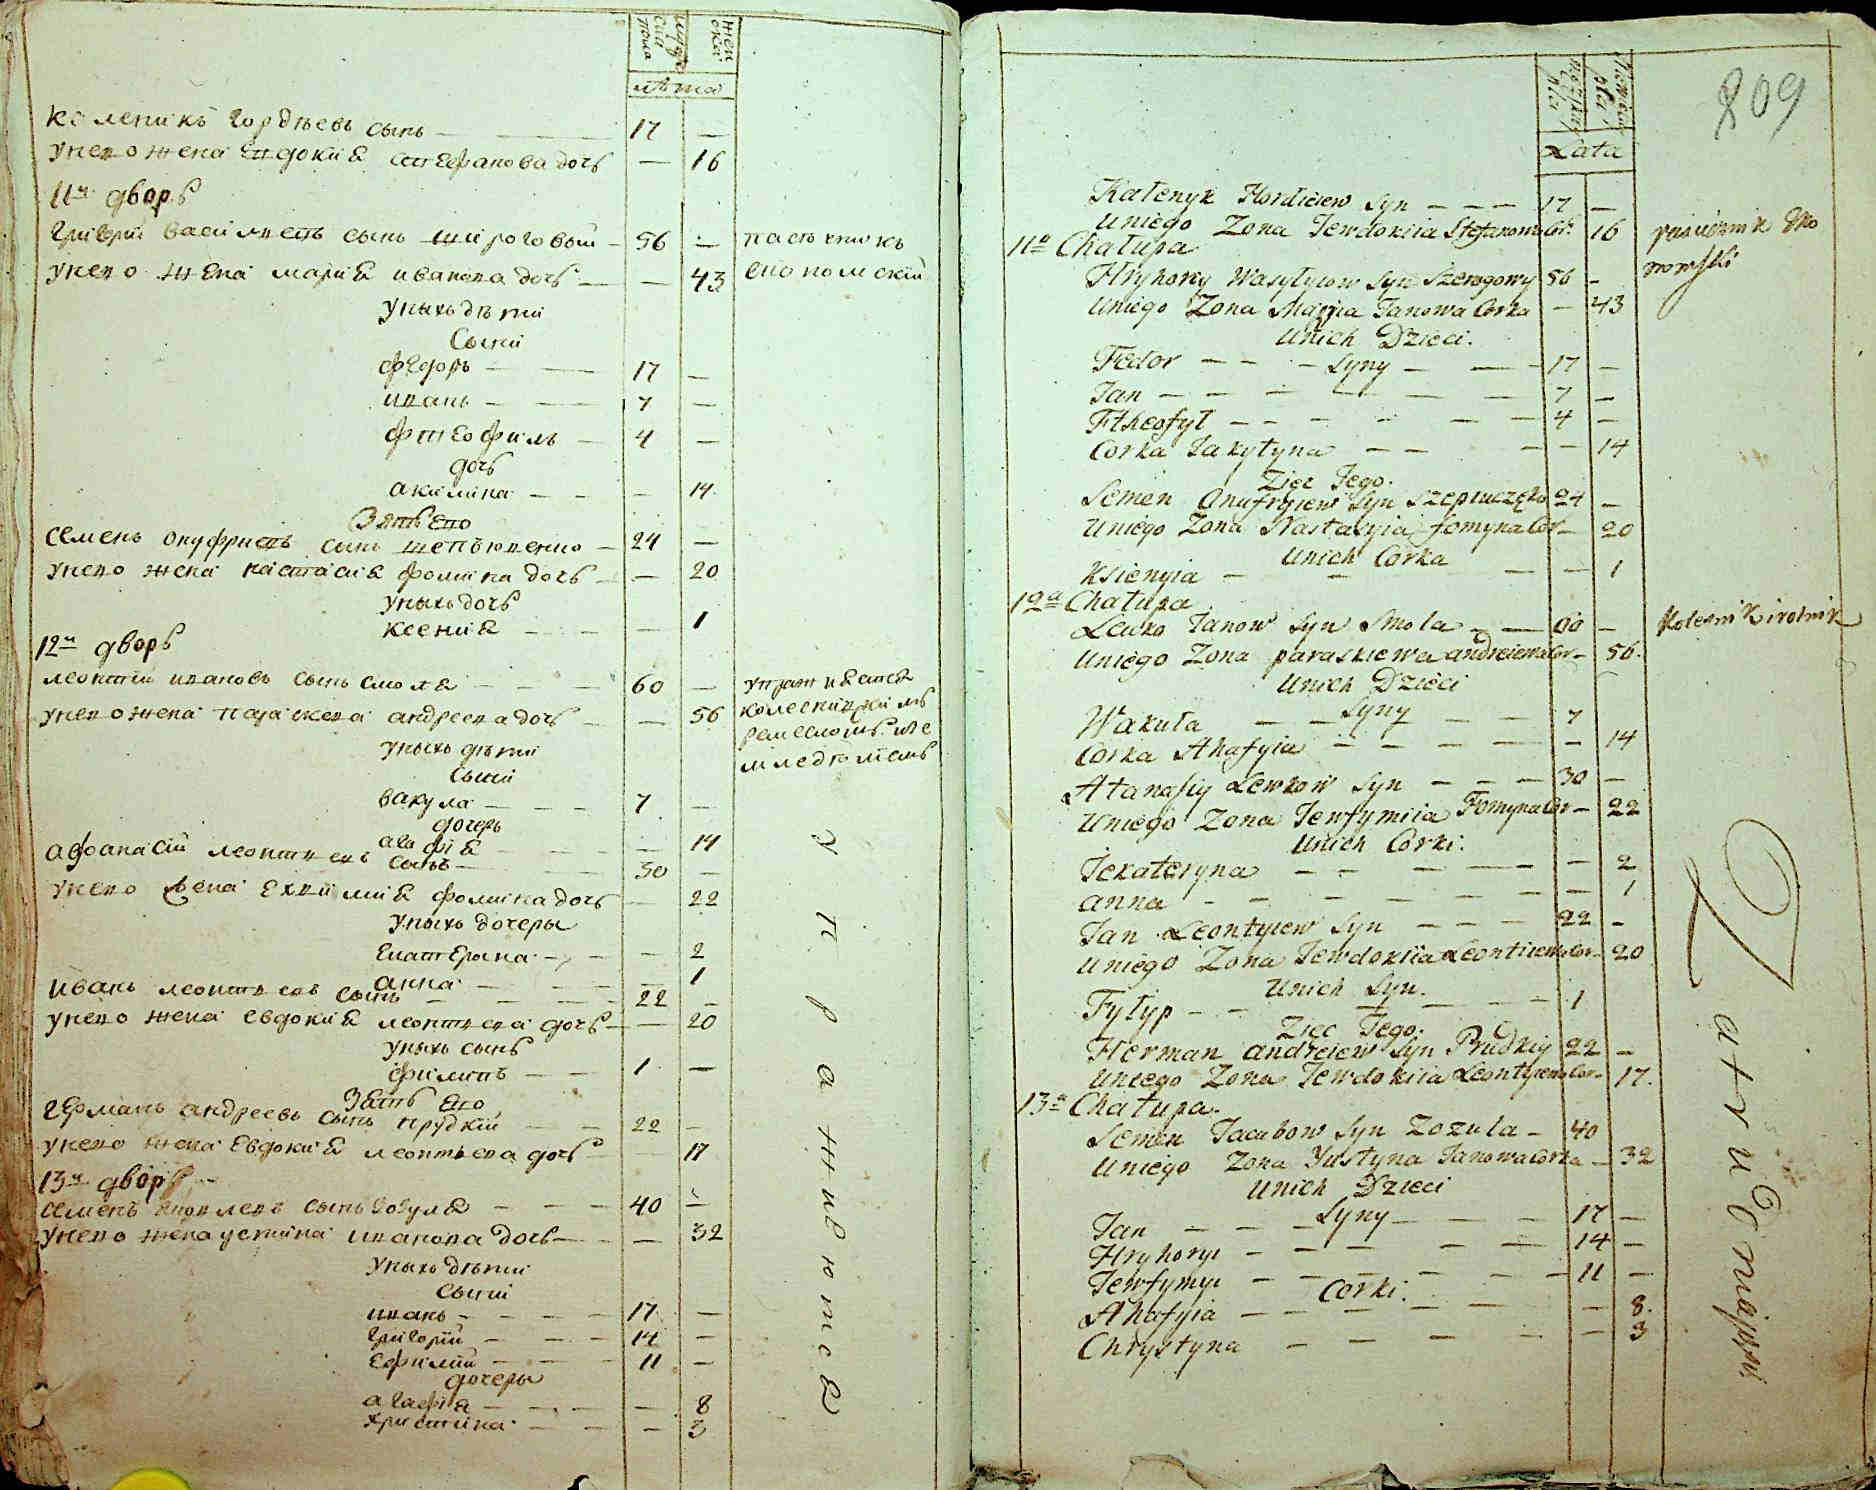 мужеска пола
женска
лѣта
калепикъ гордѣевъ сынъ — 17 —
унего жена евдокия стефанова дочь — 16
11й дворъ
григорий василиевъ сынъ широговый — 56 — пасѣчникъ
унего жена мария иванова дочь — 43 економский
уныхъ дѣти
сыни
федоръ — 17 —
иванъ — 7 —
фтеофилъ — 4 —
дочь
акилина — — 14
Зять его
семенъ онуфриевъ сынъ — 24 —
унего жена настасия фомина дочь — 20
уныхъ дочь
ксения — — 1
12й дворъ
леонтий ивановъ сынъ смола — 60 — упражняется
унего жена параскева андреева дочь — 56
уныхъ дѣти
сыни
вакула — 7 —
дочерь
агафия — — 14
афанасий леонтиевъ сынъ — 30 —
унего жена ефимия фомина дочь — 22
уныхъ дочеры
екатерина — — 2
анна — — 1
иванъ леонтиевъ сынъ — 22 —
унего жена евдокия леонтиева дочь — 20
уныхъ сынъ
филипъ — 1 —
Зять его
германъ андреевъ сынъ прудкий — 22 —
унего жена евдокия леонтьева дочь — 17
13й дворъ
семенъ яковлевъ сынъ зозуля — 40 —
унего жена устина иванова дочь — 32
уныхъ дѣти
сыни
иванъ — 17 —
григорий — 14 —
ефимий — 11 —
дочеры
агафия — — 8
христина — — 3
упражнюются
809
Lata
Kalenyk Hordieiew Syn — — — 17 —
Uniego Zona Jewdokiia Stefanowa Cor. 16
11a Chałupa
Hryhory Wasylyiow Syn Szerogowy 56 —
Uniego Zona Maryia Janowa Corka — 43
Unich Dzieci.
Syny
Fedor — — — 17 —
Jan — — — 7 —
Ftheofył — — — 4 —
Corka Jakyłyna — — — 14
Ziec Jego.
Semen Onufryiew Syn 24 —
Uniego Zona Nastasyia Fomyna Cor — 20
Unich Corka
Ksienyia — — — 1
12a Chałupa
Lewko Janow Syn Smola — 60 — Kolesnik i rolnik
Uniego Zona paraskiewa andreiewa Cor — 56.
Unich Dzieci
Syny
Wakuła — — — 7
Corka Ahafyia — — — 14
Atanasiy Lewkow Syn — — — 30 —
Uniego Zona Jewfymiia Fomyna Cor — 22
Unich Corki.
Jekateryna — — — 2
anna — — — 1
Jan Leontyiew Syn — — — 22 —
Uniego Zona Jewdokiia Leontiiewa Cor — 20
Unich Syn.
Fyłyp — — — 1
Ziec Jego.
Herman andreiew Syn Prudkiy 22 —
Uniego Zona Jewdokiia Leontyiewa Cor — 17.
13a Chałupa.
Semen Jacubow Syn Zozula — 40
Uniego Zona Justyna Janowa Corka — 32
Unich Dzieci
Syny
Jan — — — 17 —
Hryhoryi — — — 14 —
Jewfymyi — — — 11 —
Corki.
Ahafyia — — — 8.
Chrystyna — — — 3